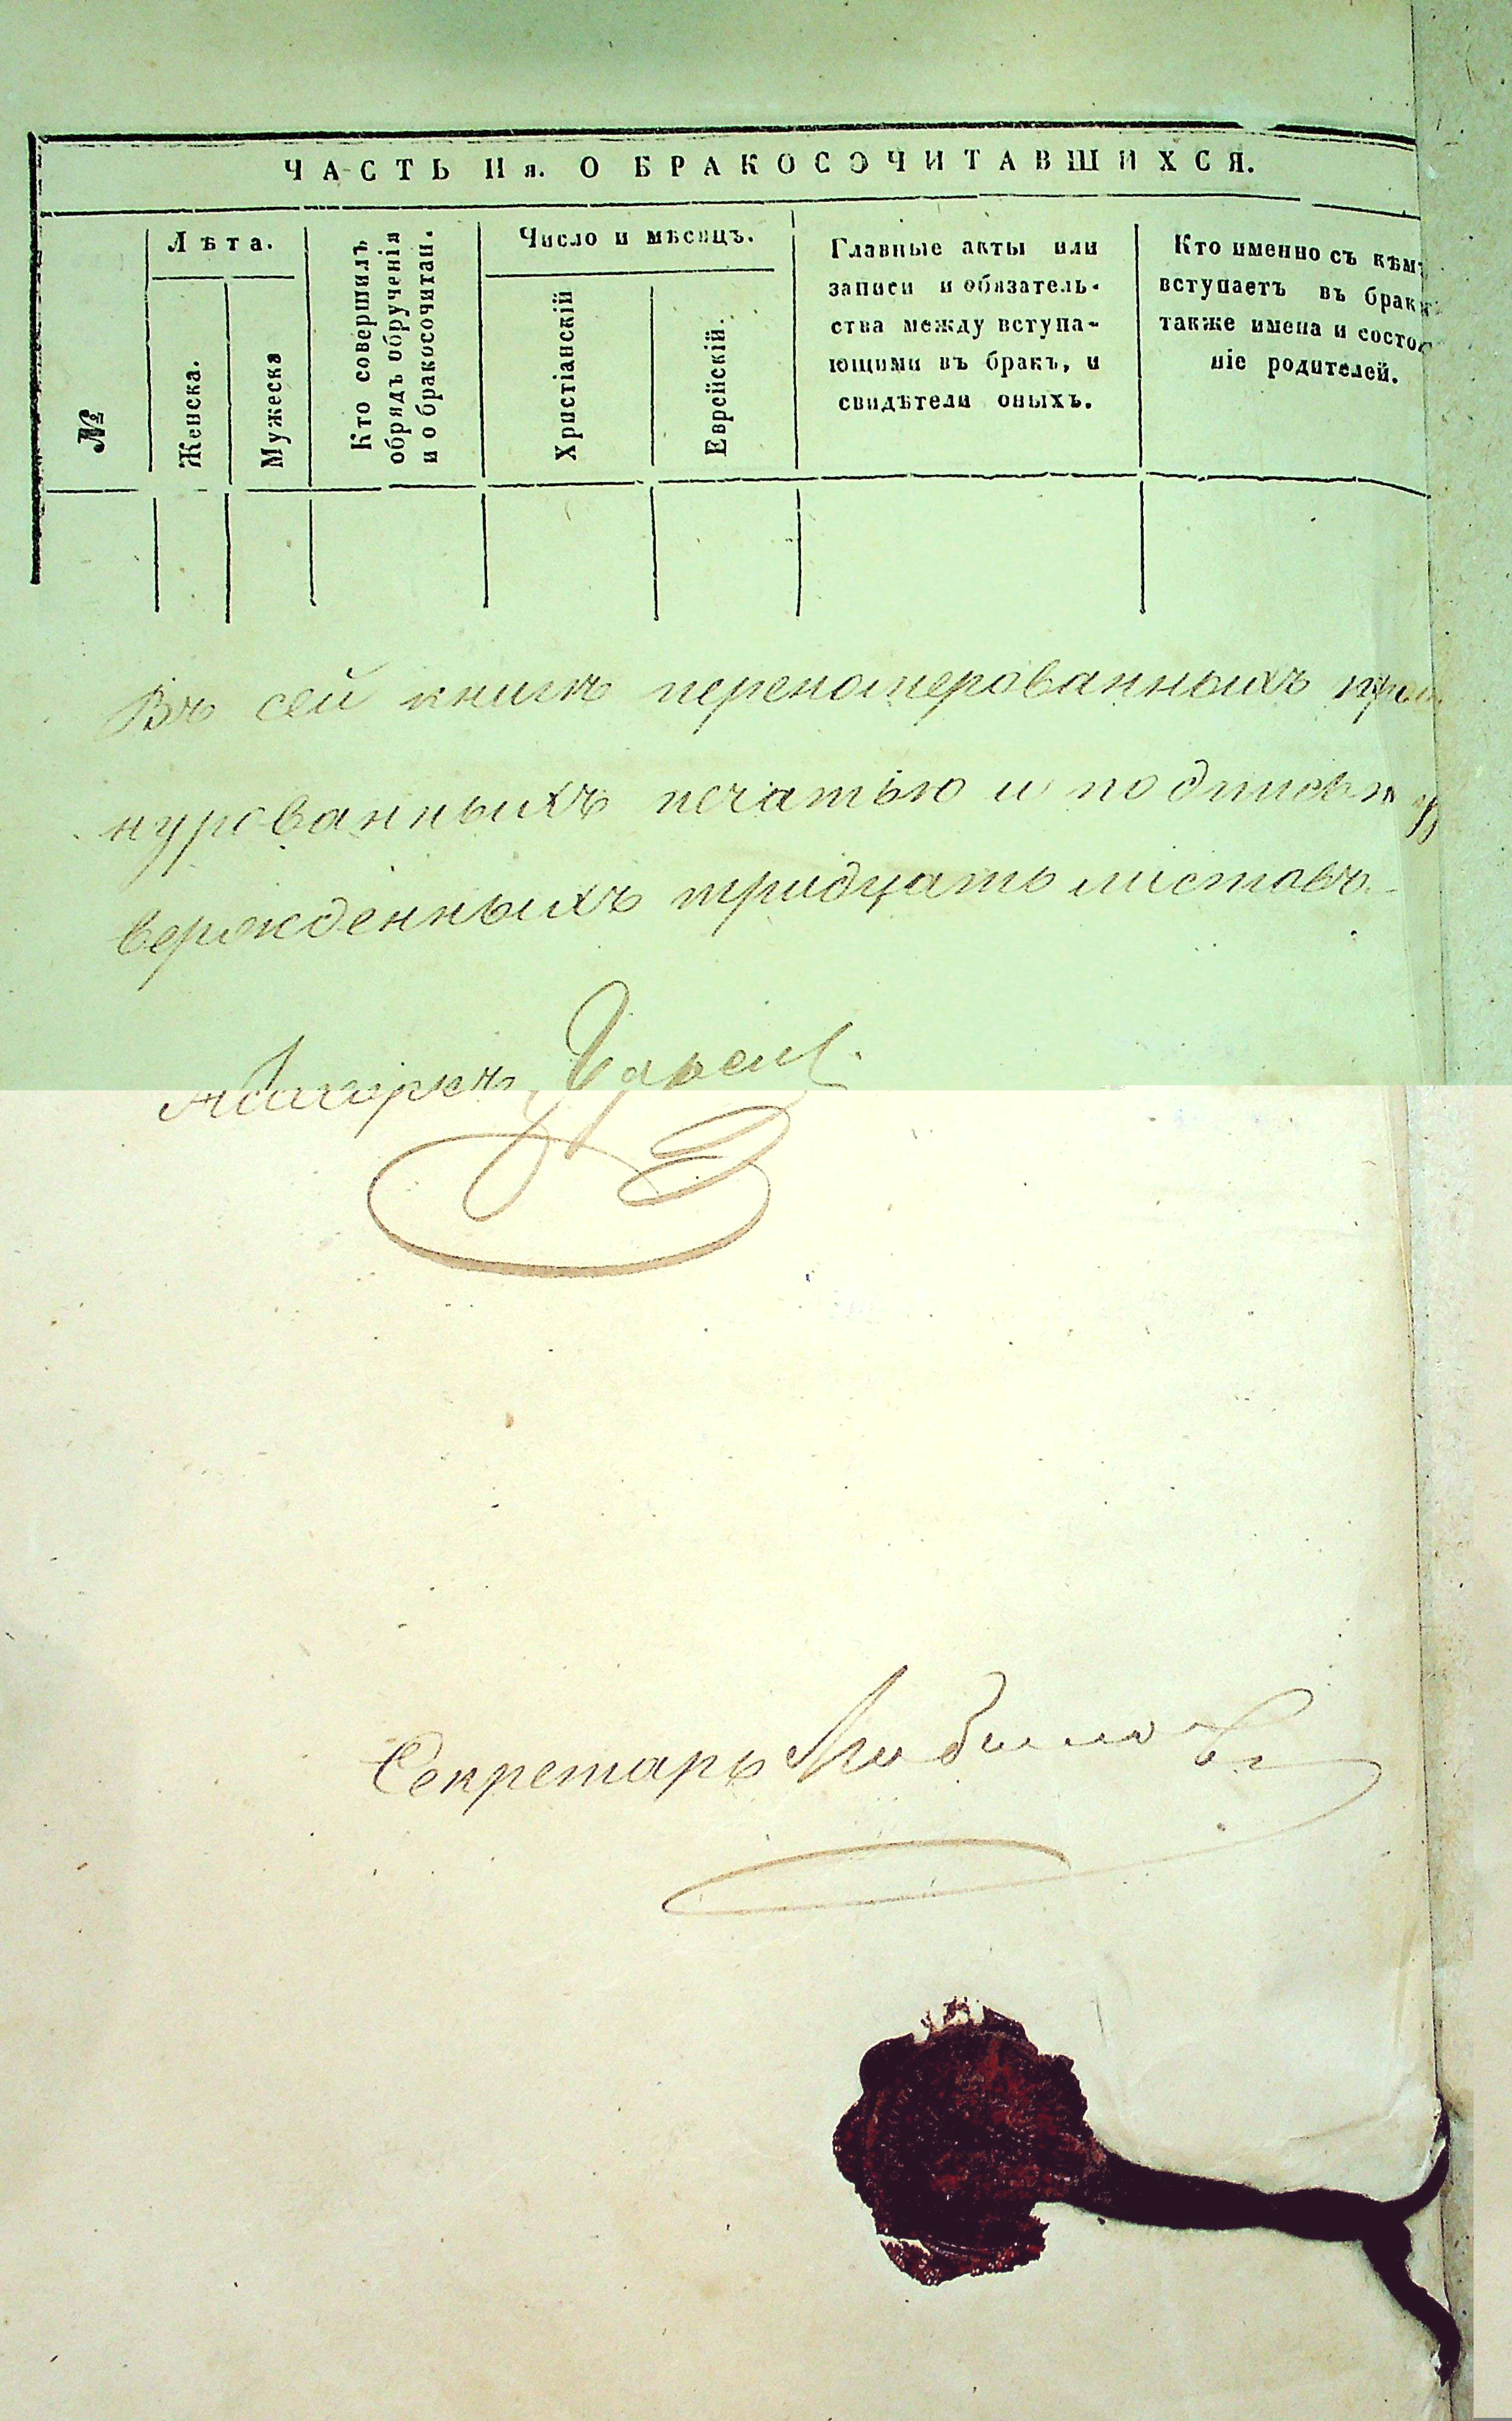 ЧАСТЬ IIя. О БРАКОСОЧИТАВШИХСЯ.
№
Лѣта.
Женска.
Мужеска
Кто совершилъ
обрядъ обрученія
и о бракосочитан.
Число и мѣсяцъ.
Христіанскій
Еврейскій.
Главные акты или
записи и обязатель-
ства между вступа-
ющими въ бракъ, и
свидѣтели оныхъ.
Кто именно съ кѣмъ
вступаетъ въ бракъ
также имена и состоя
ніе родителей.
Въ сей книгѣ переномерованныхъ
нурованныхъ печатью и подписью
вержденныхъ тридцать листовъ
Секретарь